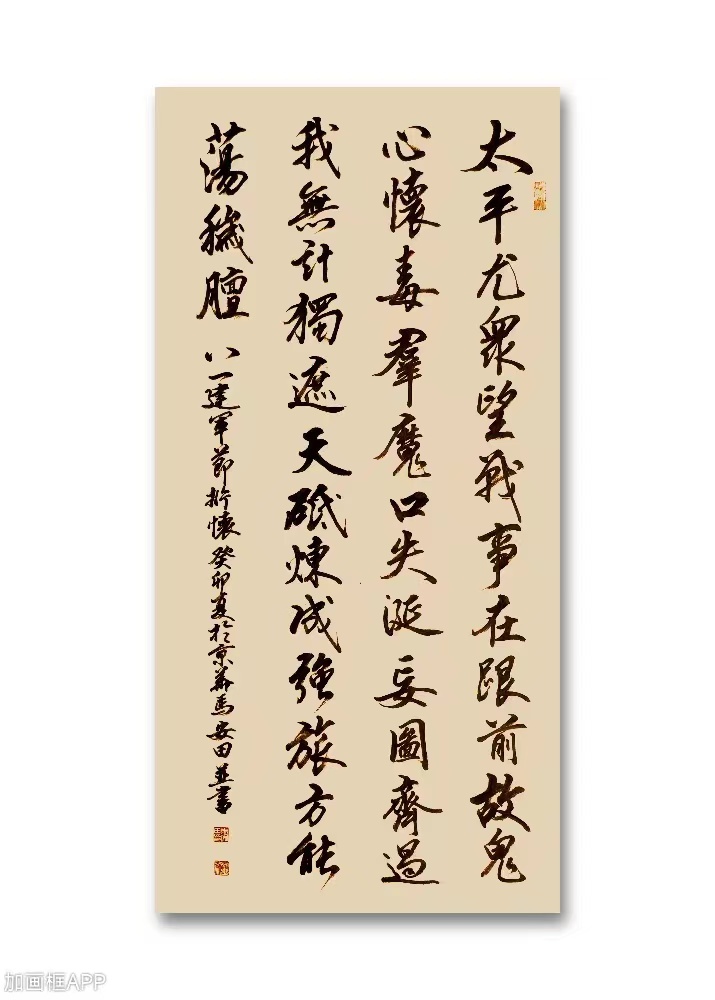 太平尤眾望戰事在跟前故鬼
心懷毒羣魔口失涎妄圖齊遏
我無計獨遮天砥煉成強旅方能
蕩穢膻
八一建軍節抒懷癸卯夏於京華馬安田並書
加画框APP